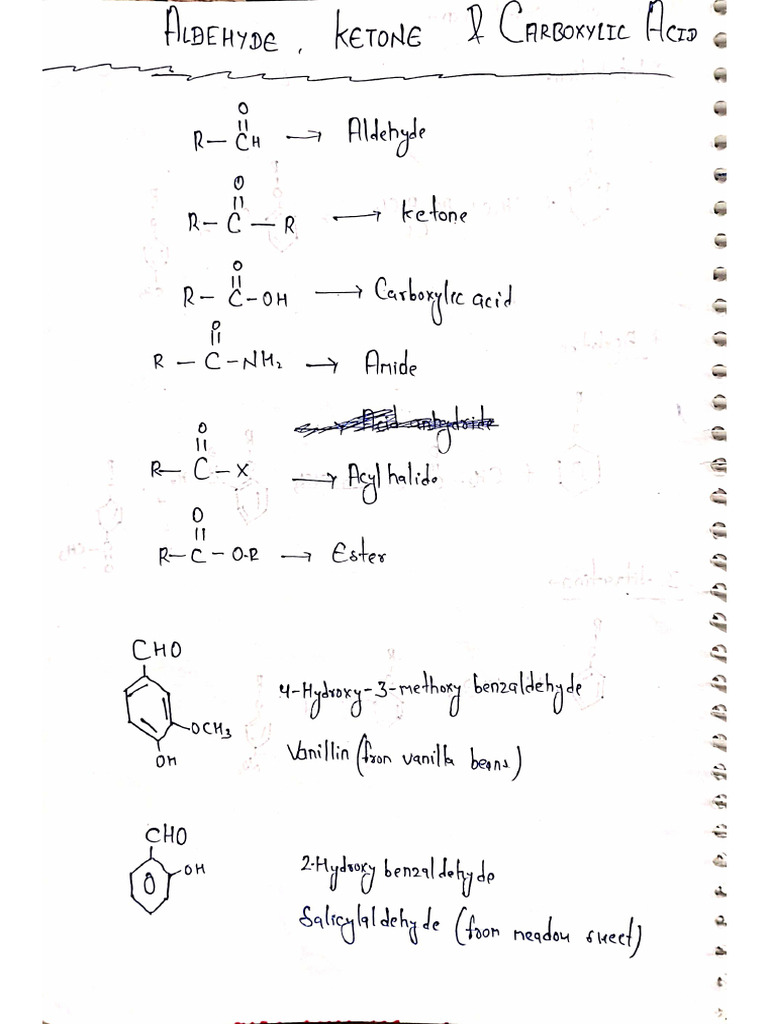 ALDEHYDE, KETONE & CARBOXYLIC ACID
O
R – CH → Aldehyde
O
R – C – R → ketone
O
R – C – OH → Carboxylic acid
O
R – C – NH₂ → Amide
Acid anhydride
O
R – C – X → Acyl halide
O
R – C – O-R → Ester
CHO
4-Hydroxy-3-methoxy benzaldehyde
OCH₃
Vanillin (from vanilla beans)
OH
CHO
OH
2-Hydroxy benzaldehyde
Salicylaldehyde (from meadow sweet)